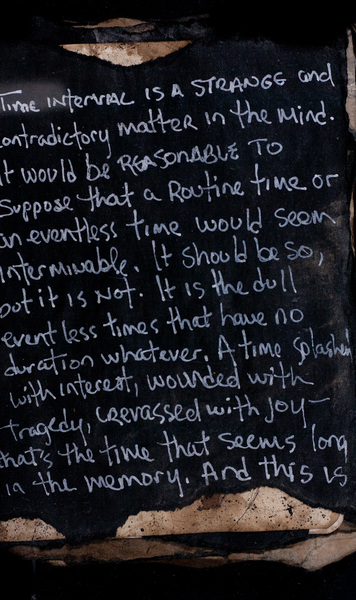 Time interval is a strange and
contradictory matter in the mind.
It would be reasonable to
suppose that a routine time or
an eventless time would seem
interminable. It should be so,
but it is not. It is the dull
eventless times that have no
duration whatever. A time splashed
with interest, wounded with
tragedy, crevassed with joy—
that's the time that seems long
in the memory. And this is